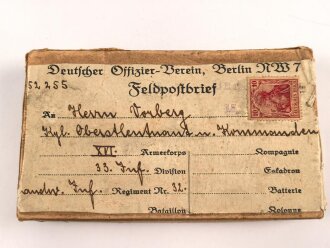 Deutscher Offizier-Verein, Berlin NW 7
Feldpostbrief
52 255
An Herrn Vorberg
Kgl. Oberstleutnant u. Kommandeur
XVI. Armeekorps Kompagnie
33. Inf. Division Eskadron
Landw. Inf. Regiment Nr. 32. Batterie
Bataillon Kolonne